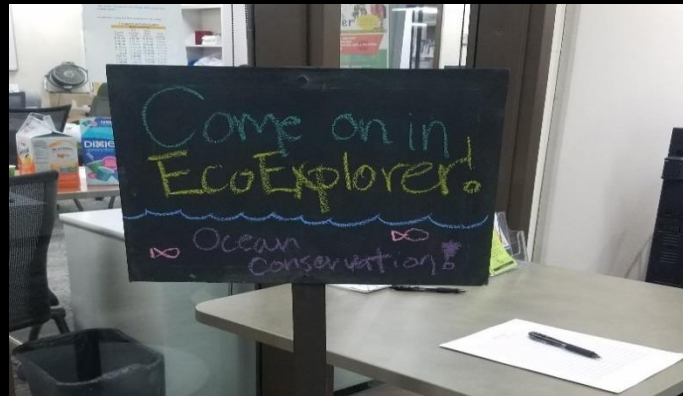 Come on in
EcoExplorer!
Ocean
conservation!
DIXIE